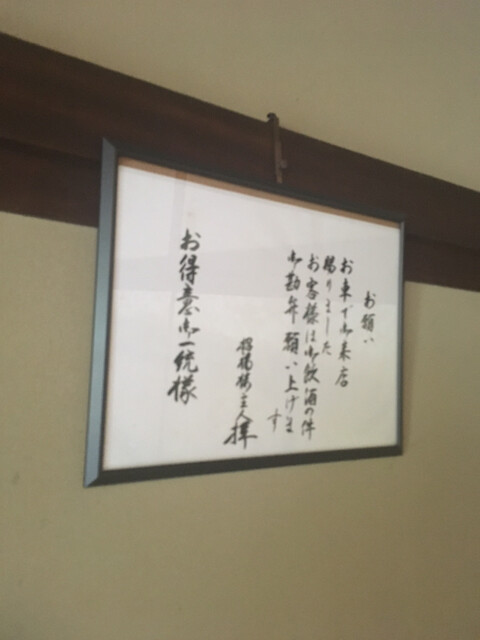 お願い
お車で御来店
賜りました
お客様は御飲酒の件
御勘弁願い上げま
す
招福楼主人 拝
お得意御一統様